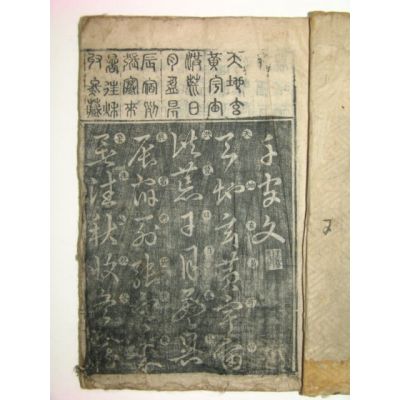 天地玄
黃宇宙
洪荒日
月盈昃
辰宿列
張寒來
暑往秋
收冬藏
千字文
天地玄黃宇宙
洪荒日月盈昃
辰宿列張寒來
暑往秋收冬藏